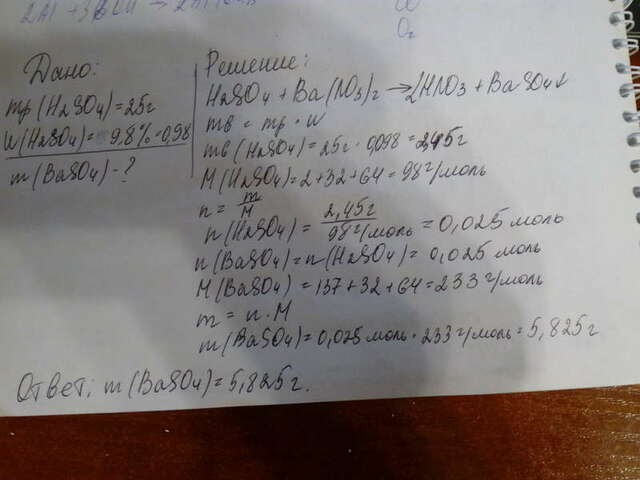 Дано:
mp (H2SO4) = 25г
W (H2SO4) = 9.8% = 0,98
m (BaSO4) - ?
Решение:
H2SO4 + Ba(NO3)2 → 2HNO3 + BaSO4↓
mв = mp · w
mв (H2SO4) = 25г · 0,098 = 2,45г
M (H2SO4) = 2+32+64 = 98 г/моль
n = m/M
n (H2SO4) = 2,45г / 98 г/моль = 0,025 моль
n (BaSO4) = n (H2SO4) = 0,025 моль
M (BaSO4) = 137+32+64 = 233 г/моль
m = n · M
m (BaSO4) = 0,025 моль · 233 г/моль = 5,825 г
Ответ: m (BaSO4) = 5,825 г.